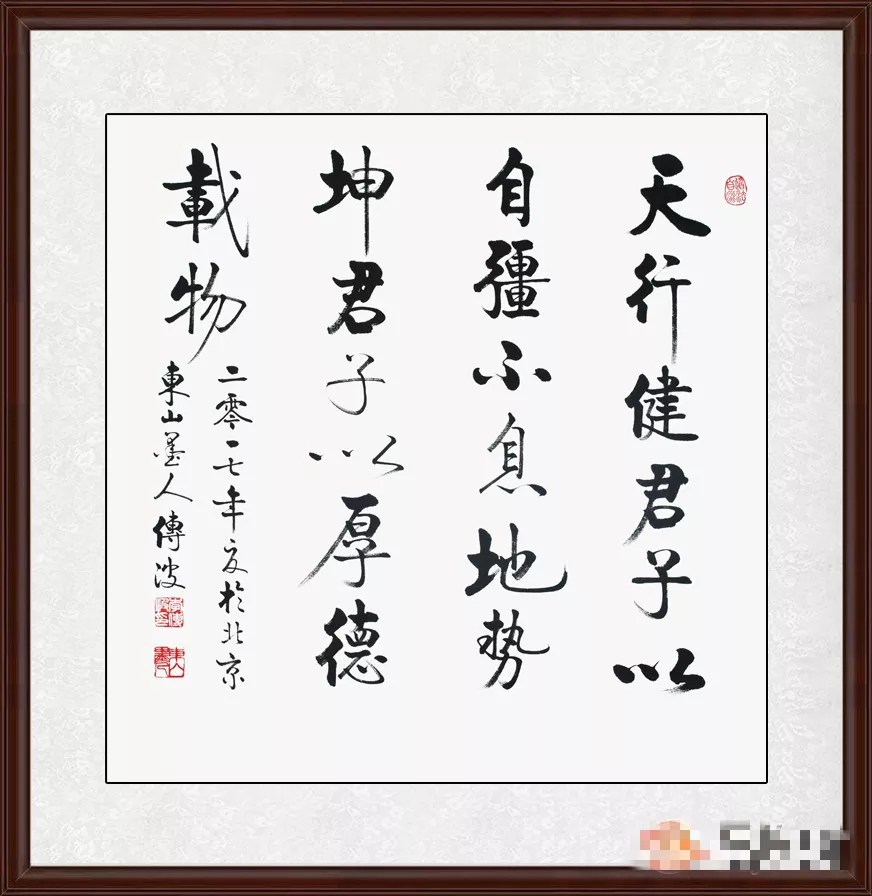 天行健君子以
自彊不息地势
坤君子以厚德
載物
二零一七年夏於北京
東山墨人傳波